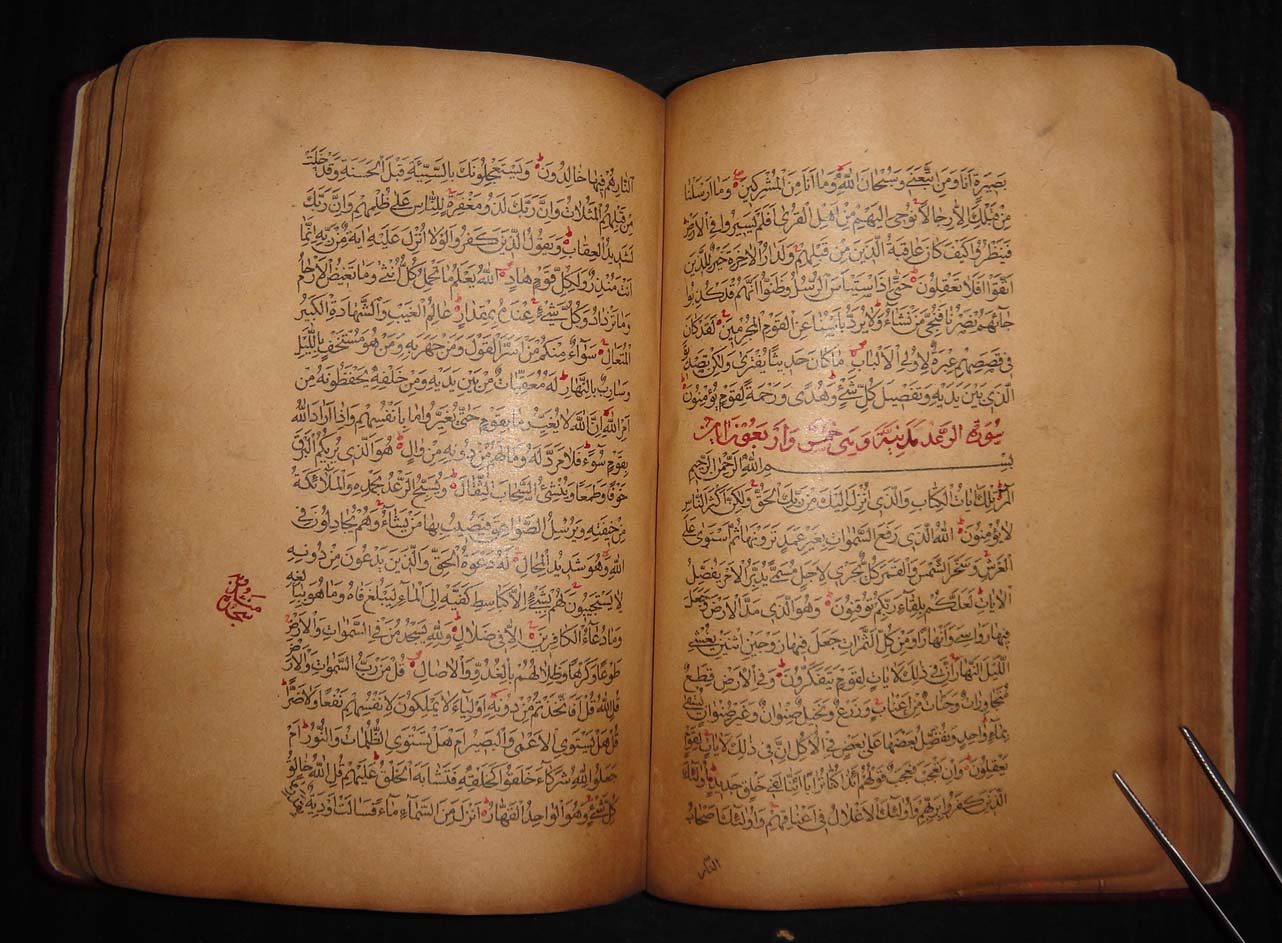 بَصِيرَةٍ أَنَا وَمَنِ اتَّبَعَنِي وَسُبْحَانَ اللَّهِ وَمَا أَنَا مِنَ الْمُشْرِكِينَ وَمَا أَرْسَلْنَا
مِنْ قَبْلِكَ إِلَّا رِجَالًا نُوحِي إِلَيْهِمْ مِنْ أَهْلِ الْقُرَى أَفَلَمْ يَسِيرُوا فِي الْأَرْضِ
فَيَنْظُرُوا كَيْفَ كَانَ عَاقِبَةُ الَّذِينَ مِنْ قَبْلِهِمْ وَلَدَارُ الْآخِرَةِ خَيْرٌ لِلَّذِينَ
اتَّقَوْا أَفَلَا تَعْقِلُونَ حَتَّى إِذَا اسْتَيْأَسَ الرُّسُلُ وَظَنُّوا أَنَّهُمْ قَدْ كُذِبُوا
جَاءَهُمْ نَصْرُنَا فَنُجِّيَ مَنْ نَشَاءُ وَلَا يُرَدُّ بَأْسُنَا عَنِ الْقَوْمِ الْمُجْرِمِينَ لَقَدْ كَانَ
فِي قَصَصِهِمْ عِبْرَةٌ لِأُولِي الْأَلْبَابِ مَا كَانَ حَدِيثًا يُفْتَرَى وَلَكِنْ تَصْدِيقَ
الَّذِي بَيْنَ يَدَيْهِ وَتَفْصِيلَ كُلِّ شَيْءٍ وَهُدًى وَرَحْمَةً لِقَوْمٍ يُؤْمِنُونَ
سورة الرعد مدنية وهي خمس واربعون ايات
بسم الله الرحمن الرحيم
المر تِلْكَ آيَاتُ الْكِتَابِ وَالَّذِي أُنْزِلَ إِلَيْكَ مِنْ رَبِّكَ الْحَقُّ وَلَكِنَّ أَكْثَرَ النَّاسِ
لَا يُؤْمِنُونَ اللَّهُ الَّذِي رَفَعَ السَّمَوَاتِ بِغَيْرِ عَمَدٍ تَرَوْنَهَا ثُمَّ اسْتَوَى عَلَى
الْعَرْشِ وَسَخَّرَ الشَّمْسَ وَالْقَمَرَ كُلٌّ يَجْرِي لِأَجَلٍ مُسَمًّى يُدَبِّرُ الْأَمْرَ يُفَصِّلُ
الْآيَاتِ لَعَلَّكُمْ بِلِقَاءِ رَبِّكُمْ تُوقِنُونَ وَهُوَ الَّذِي مَدَّ الْأَرْضَ وَجَعَلَ
فِيهَا رَوَاسِيَ وَأَنْهَارًا وَمِنْ كُلِّ الثَّمَرَاتِ جَعَلَ فِيهَا زَوْجَيْنِ اثْنَيْنِ يُغْشِي
اللَّيْلَ النَّهَارَ إِنَّ فِي ذَلِكَ لَآيَاتٍ لِقَوْمٍ يَتَفَكَّرُونَ وَفِي الْأَرْضِ قِطَعٌ
مُتَجَاوِرَاتٌ وَجَنَّاتٌ مِنْ أَعْنَابٍ وَزَرْعٌ وَنَخِيلٌ صِنْوَانٌ وَغَيْرُ صِنْوَانٍ يُسْقَى
بِمَاءٍ وَاحِدٍ وَنُفَضِّلُ بَعْضَهَا عَلَى بَعْضٍ فِي الْأُكُلِ إِنَّ فِي ذَلِكَ لَآيَاتٍ لِقَوْمٍ
يَعْقِلُونَ وَإِنْ تَعْجَبْ فَعَجَبٌ قَوْلُهُمْ أَئِذَا كُنَّا تُرَابًا أَئِنَّا لَفِي خَلْقٍ جَدِيدٍ أُولَئِكَ
الَّذِينَ كَفَرُوا بِرَبِّهِمْ وَأُولَئِكَ الْأَغْلَالُ فِي أَعْنَاقِهِمْ وَأُولَئِكَ أَصْحَابُ
النار
النَّارِ هُمْ فِيهَا خَالِدُونَ وَيَسْتَعْجِلُونَكَ بِالسَّيِّئَةِ قَبْلَ الْحَسَنَةِ وَقَدْ خَلَتْ
مِنْ قَبْلِهِمُ الْمَثُلَاتُ وَإِنَّ رَبَّكَ لَذُو مَغْفِرَةٍ لِلنَّاسِ عَلَى ظُلْمِهِمْ وَإِنَّ رَبَّكَ
لَشَدِيدُ الْعِقَابِ وَيَقُولُ الَّذِينَ كَفَرُوا لَوْلَا أُنْزِلَ عَلَيْهِ آيَةٌ مِنْ رَبِّهِ إِنَّمَا
أَنْتَ مُنْذِرٌ وَلِكُلِّ قَوْمٍ هَادٍ اللَّهُ يَعْلَمُ مَا تَحْمِلُ كُلُّ أُنْثَى وَمَا تَغِيضُ الْأَرْحَامُ
وَمَا تَزْدَادُ وَكُلُّ شَيْءٍ عِنْدَهُ بِمِقْدَارٍ عَالِمُ الْغَيْبِ وَالشَّهَادَةِ الْكَبِيرُ
الْمُتَعَالِ سَوَاءٌ مِنْكُمْ مَنْ أَسَرَّ الْقَوْلَ وَمَنْ جَهَرَ بِهِ وَمَنْ هُوَ مُسْتَخْفٍ بِاللَّيْلِ
وَسَارِبٌ بِالنَّهَارِ لَهُ مُعَقِّبَاتٌ مِنْ بَيْنِ يَدَيْهِ وَمِنْ خَلْفِهِ يَحْفَظُونَهُ مِنْ
أَمْرِ اللَّهِ إِنَّ اللَّهَ لَا يُغَيِّرُ مَا بِقَوْمٍ حَتَّى يُغَيِّرُوا مَا بِأَنْفُسِهِمْ وَإِذَا أَرَادَ اللَّهُ
بِقَوْمٍ سُوءًا فَلَا مَرَدَّ لَهُ وَمَا لَهُمْ مِنْ دُونِهِ مِنْ وَالٍ هُوَ الَّذِي يُرِيكُمُ الْبَرْقَ
خَوْفًا وَطَمَعًا وَيُنْشِئُ السَّحَابَ الثِّقَالَ وَيُسَبِّحُ الرَّعْدُ بِحَمْدِهِ وَالْمَلَائِكَةُ
مِنْ خِيفَتِهِ وَيُرْسِلُ الصَّوَاعِقَ فَيُصِيبُ بِهَا مَنْ يَشَاءُ وَهُمْ يُجَادِلُونَ فِي
اللَّهِ وَهُوَ شَدِيدُ الْمِحَالِ لَهُ دَعْوَةُ الْحَقِّ وَالَّذِينَ يَدْعُونَ مِنْ دُونِهِ
لَا يَسْتَجِيبُونَ لَهُمْ بِشَيْءٍ إِلَّا كَبَاسِطِ كَفَّيْهِ إِلَى الْمَاءِ لِيَبْلُغَ فَاهُ وَمَا هُوَ بِبَالِغِهِ
وَمَا دُعَاءُ الْكَافِرِينَ إِلَّا فِي ضَلَالٍ وَلِلَّهِ يَسْجُدُ مَنْ فِي السَّمَوَاتِ وَالْأَرْضِ
طَوْعًا وَكَرْهًا وَظِلَالُهُمْ بِالْغُدُوِّ وَالْآصَالِ قُلْ مَنْ رَبُّ السَّمَوَاتِ وَالْأَرْضِ
قُلِ اللَّهُ قُلْ أَفَاتَّخَذْتُمْ مِنْ دُونِهِ أَوْلِيَاءَ لَا يَمْلِكُونَ لِأَنْفُسِهِمْ نَفْعًا وَلَا ضَرًّا
قُلْ هَلْ يَسْتَوِي الْأَعْمَى وَالْبَصِيرُ أَمْ هَلْ تَسْتَوِي الظُّلُمَاتُ وَالنُّورُ أَمْ
جَعَلُوا لِلَّهِ شُرَكَاءَ خَلَقُوا كَخَلْقِهِ فَتَشَابَهَ الْخَلْقُ عَلَيْهِمْ قُلِ اللَّهُ خَالِقُ
كُلِّ شَيْءٍ وَهُوَ الْوَاحِدُ الْقَهَّارُ أَنْزَلَ مِنَ السَّمَاءِ مَاءً فَسَالَتْ أَوْدِيَةٌ